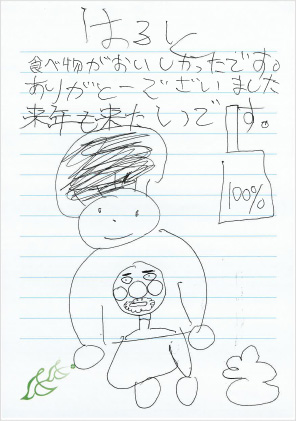 はると
食べ物がおいしかったです。
ありがとーでざいました
来年も来たいです。
100%